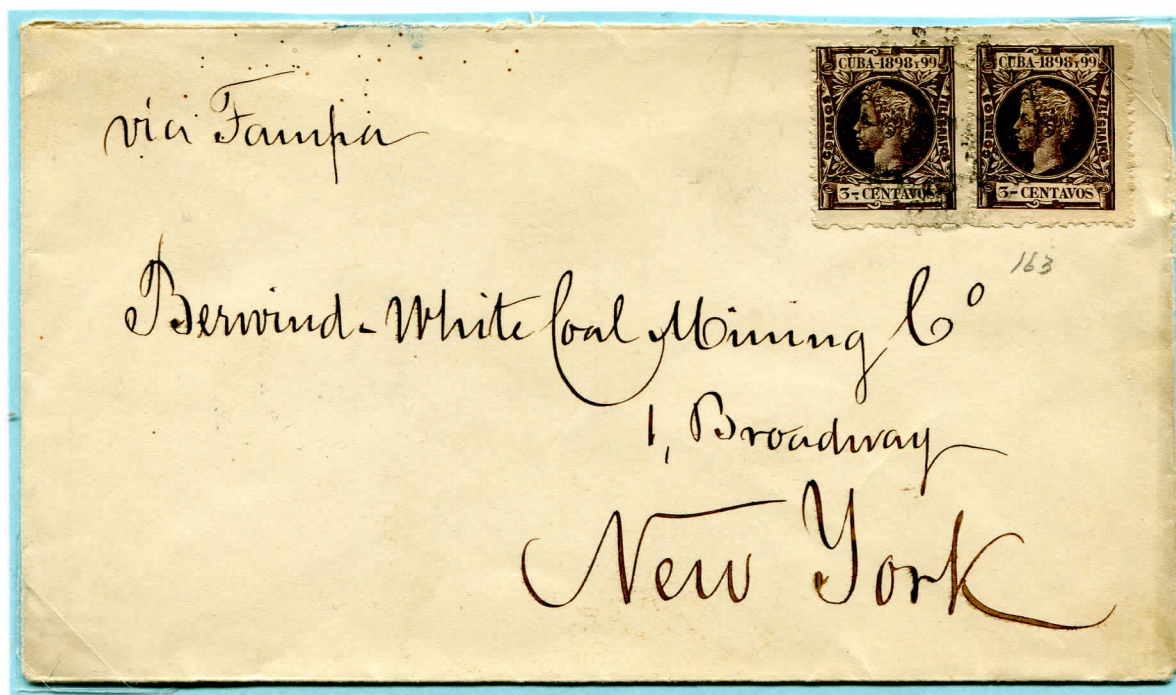 via Tampa
CUBA-1898 Y 99
CUBA-1898 Y 99
3-CENTAVOS
3-CENTAVOS
163
Berwind-White Coal Mining Cº
1, Broadway
New York